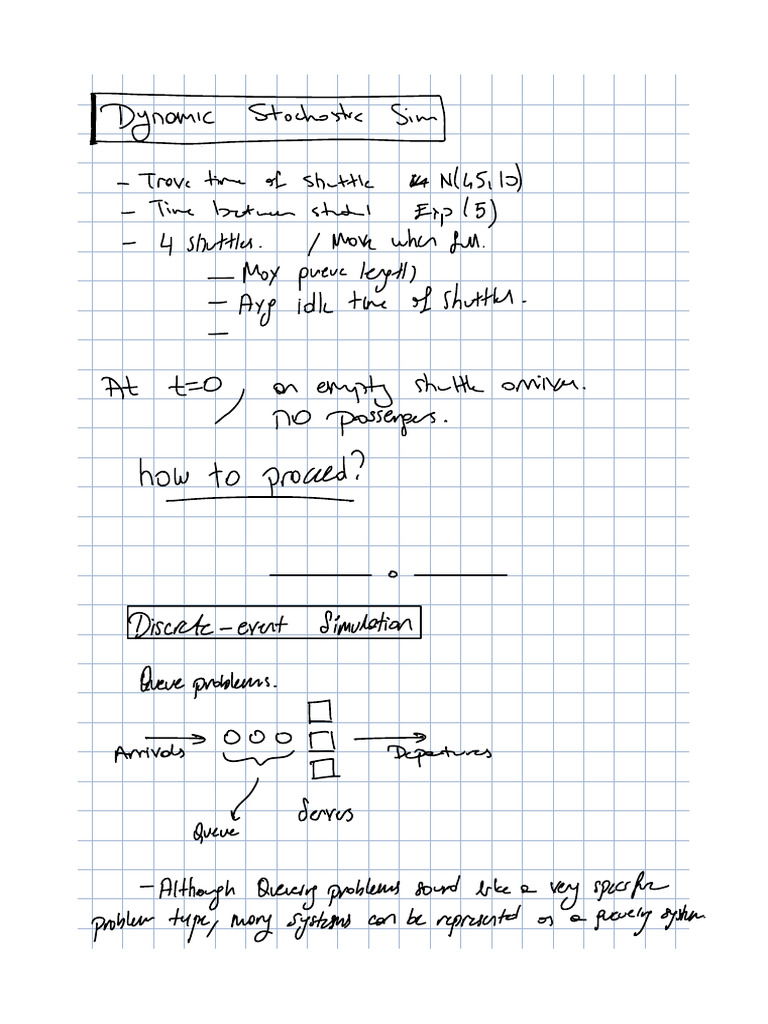 Dynamic Stochastic Sim
- Trave time of shuttle N(45,10)
- Time between studet Exp(5)
- 4 shuttles. / Move when full.
- Max queue length
- Avg idle time of shuttles.
-
At t=0, an empty shuttle arrives.
no passengers.
how to proceed?
Discrete-event Simulation
Queue problems.
Arrivals
Departures
Servers
Queue
- Although Queueing problems sound like a very specific
problem type, many systems can be represented as a queueing system